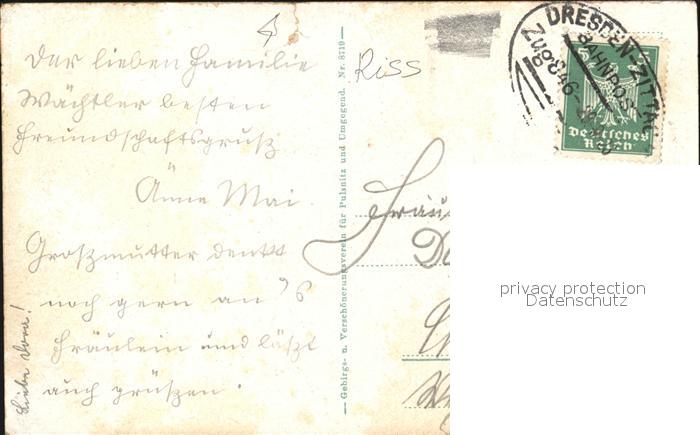 Der lieben Familie
Wächtler besten
Freundschaftsgruß
Änne Mai.
Großmutter denkt
noch gern an
Fräulein und läßt
auch grüßen.
Liebe Dora!
— Gebirgs- u. Verschönerungsverein für Pulsnitz und Umgegend. Nr. 8719 —
Riss
DRESDEN-ZITTAU
BAHNPOST
Zug
5 5
Deutsches
Reich
Fräu
privacy protection
Datenschutz